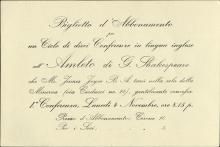 Biglietto d'Abbonamento
per
un Ciclo di dieci Conferenze in lingua inglese
sull' Amleto di G. Shakespeare
che Mr. James Joyce B. A. terrà nella sala della
Minerva (via Carducci no. 28), gentilmente concessa
1ª Conferenza, Lunedì 4 Novembre, ore 8.15 p.
Prezzo d'Abbonamento: Corone 10.
Per i Soci,